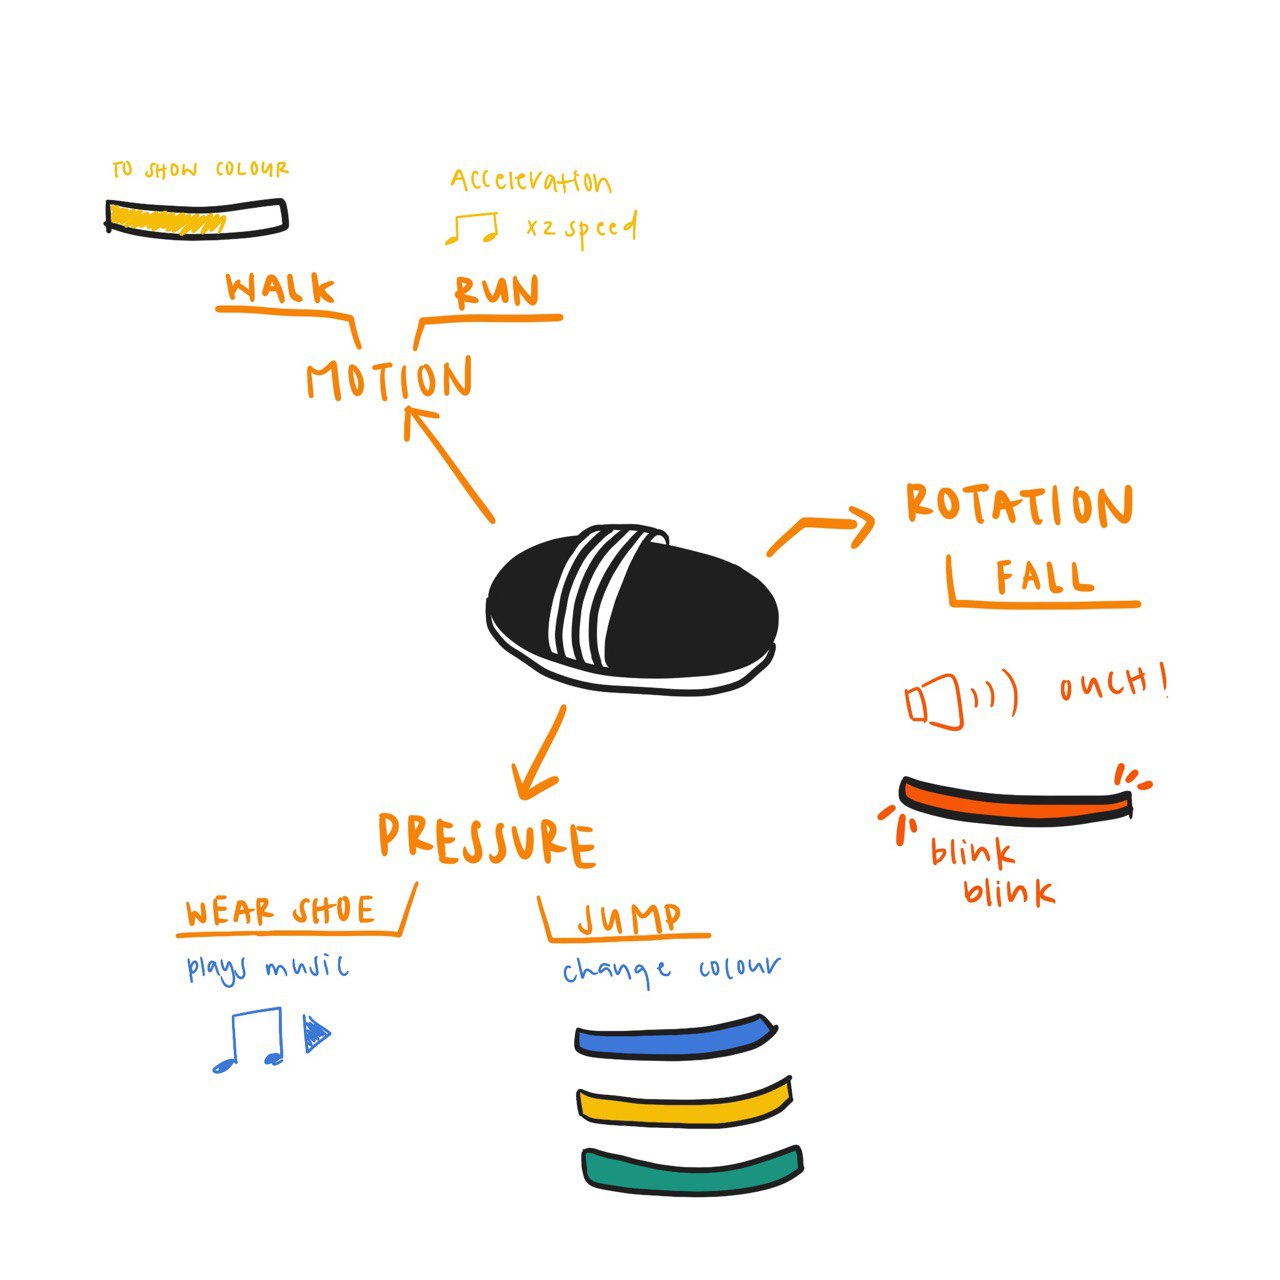 TO SHOW COLOUR
Acceleration
x2 speed
WALK
RUN
MOTION
ROTATION
FALL
OUCH!
blink
blink
PRESSURE
WEAR SHOE
plays music
JUMP
change colour